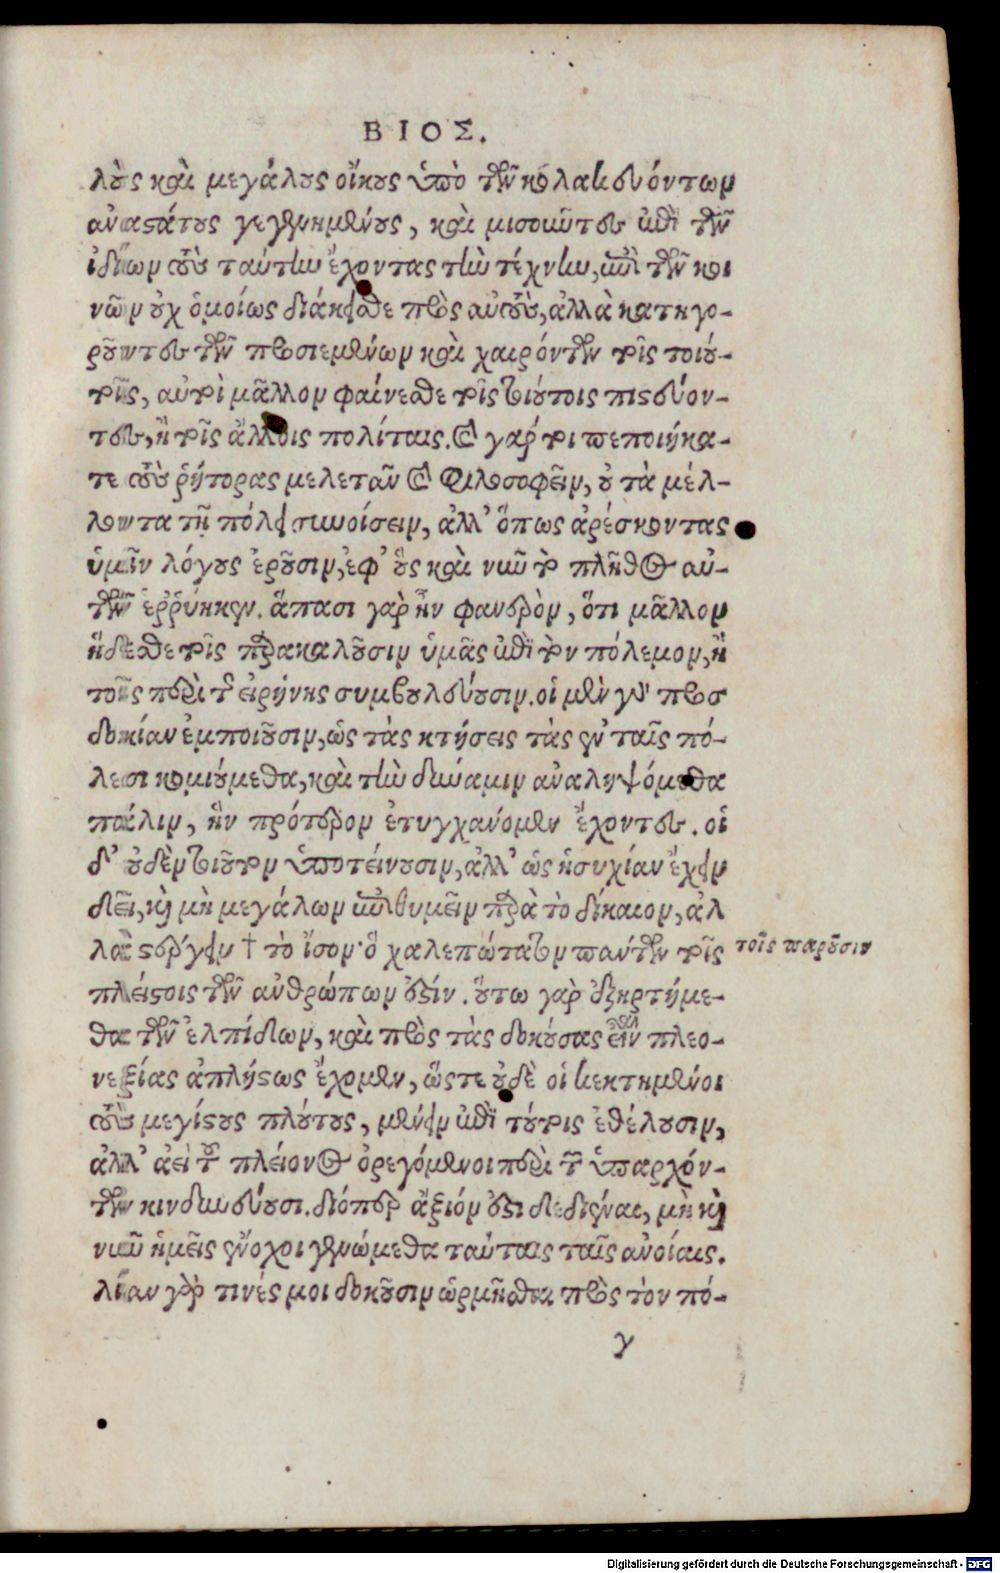 ΒΙΟΣ.
λοὺς καὶ μεγάλους οἴκους ὑπὸ τῶν κολακευόντων
ἀναστάτους γεγενημένους, καὶ μισοῦντες ἐπὶ τῶν
ἰδίων τοὺς ταύτην ἔχοντας τὴν τέχνην, ἐπὶ τῶν κοι
νῶν οὐχ ὁμοίως διάκεισθε πρὸς αὐτοὺς, ἀλλὰ κατηγο-
ροῦντες τῶν προσιεμένων καὶ χαιρόντων τοῖς τοιού-
τοις, αὐτοὶ μᾶλλον φαίνεσθε τοῖς τοιούτοις πιστεύον-
τες, ἢ τοῖς ἄλλοις πολίταις. καὶ γάρ τοι πεποιήκα-
τε τοὺς ῥήτορας μελετᾶν καὶ φιλοσοφεῖν, οὐ τὰ μέλ-
λοντα τῇ πόλει συνοίσειν, ἀλλ' ὅπως ἀρέσκοντας
ὑμῖν λόγους ἐροῦσιν, ἐφ' οὓς καὶ νῦν τὸ πλῆθος αὐ-
τῶν ἐρρύηκεν. ἅπασι γὰρ ἦν φανερὸν, ὅτι μᾶλλον
ἥδεσθε τοῖς παρακαλοῦσιν ὑμᾶς ἐπὶ τὸν πόλεμον, ἢ
τοῖς περὶ τῆς εἰρήνης συμβουλεύουσιν. οἱ μὲν γὰρ προσ
δοκίαν ἐμποιοῦσιν, ὡς τὰς κτήσεις τὰς ἐν ταῖς πό-
λεσι κομιούμεθα, καὶ τὴν δύναμιν ἀναληψόμεθα
πάλιν, ἣν πρότερον ἐτυγχάνομεν ἔχοντες. οἱ
δ' οὐδὲν τοιοῦτον ὑποτείνουσιν, ἀλλ' ὡς ἡσυχίαν ἔχειν
δεῖ, καὶ μὴ μεγάλων ἐπιθυμεῖν παρὰ τὸ δίκαιον, ἀλ
λὰ στέργειν † τὸ ἴσον· ὃ χαλεπώτατον πάντων τοῖς
τοῖς παροῦσιν
πλείστοις τῶν ἀνθρώπων ἐστίν. οὕτω γὰρ ἐξηρτήμε-
θα τῶν ἐλπίδων, καὶ πρὸς τὰς δοκούσας εἶναι πλεο-
νεξίας ἀπλήστως ἔχομεν, ὥστε οὐδὲ οἱ κεκτημένοι
τοὺς μεγίστους πλούτους, μένειν ἐπὶ τούτοις ἐθέλουσιν,
ἀλλ' ἀεὶ τοῦ πλείονος ὀρεγόμενοι περὶ τῶν ὑπαρχόν-
των κινδυνεύουσι. διόπερ ἄξιόν ἐστι δεδιέναι, μὴ καὶ
νῦν ἡμεῖς ἔνοχοι γενώμεθα ταύταις ταῖς ἀνοίαις.
λίαν γὰρ τινές μοι δοκοῦσιν ὡρμῆσθαι πρὸς τὸν πό-
γ
Digitalisierung gefördert durch die Deutsche Forschungsgemeinschaft - DFG